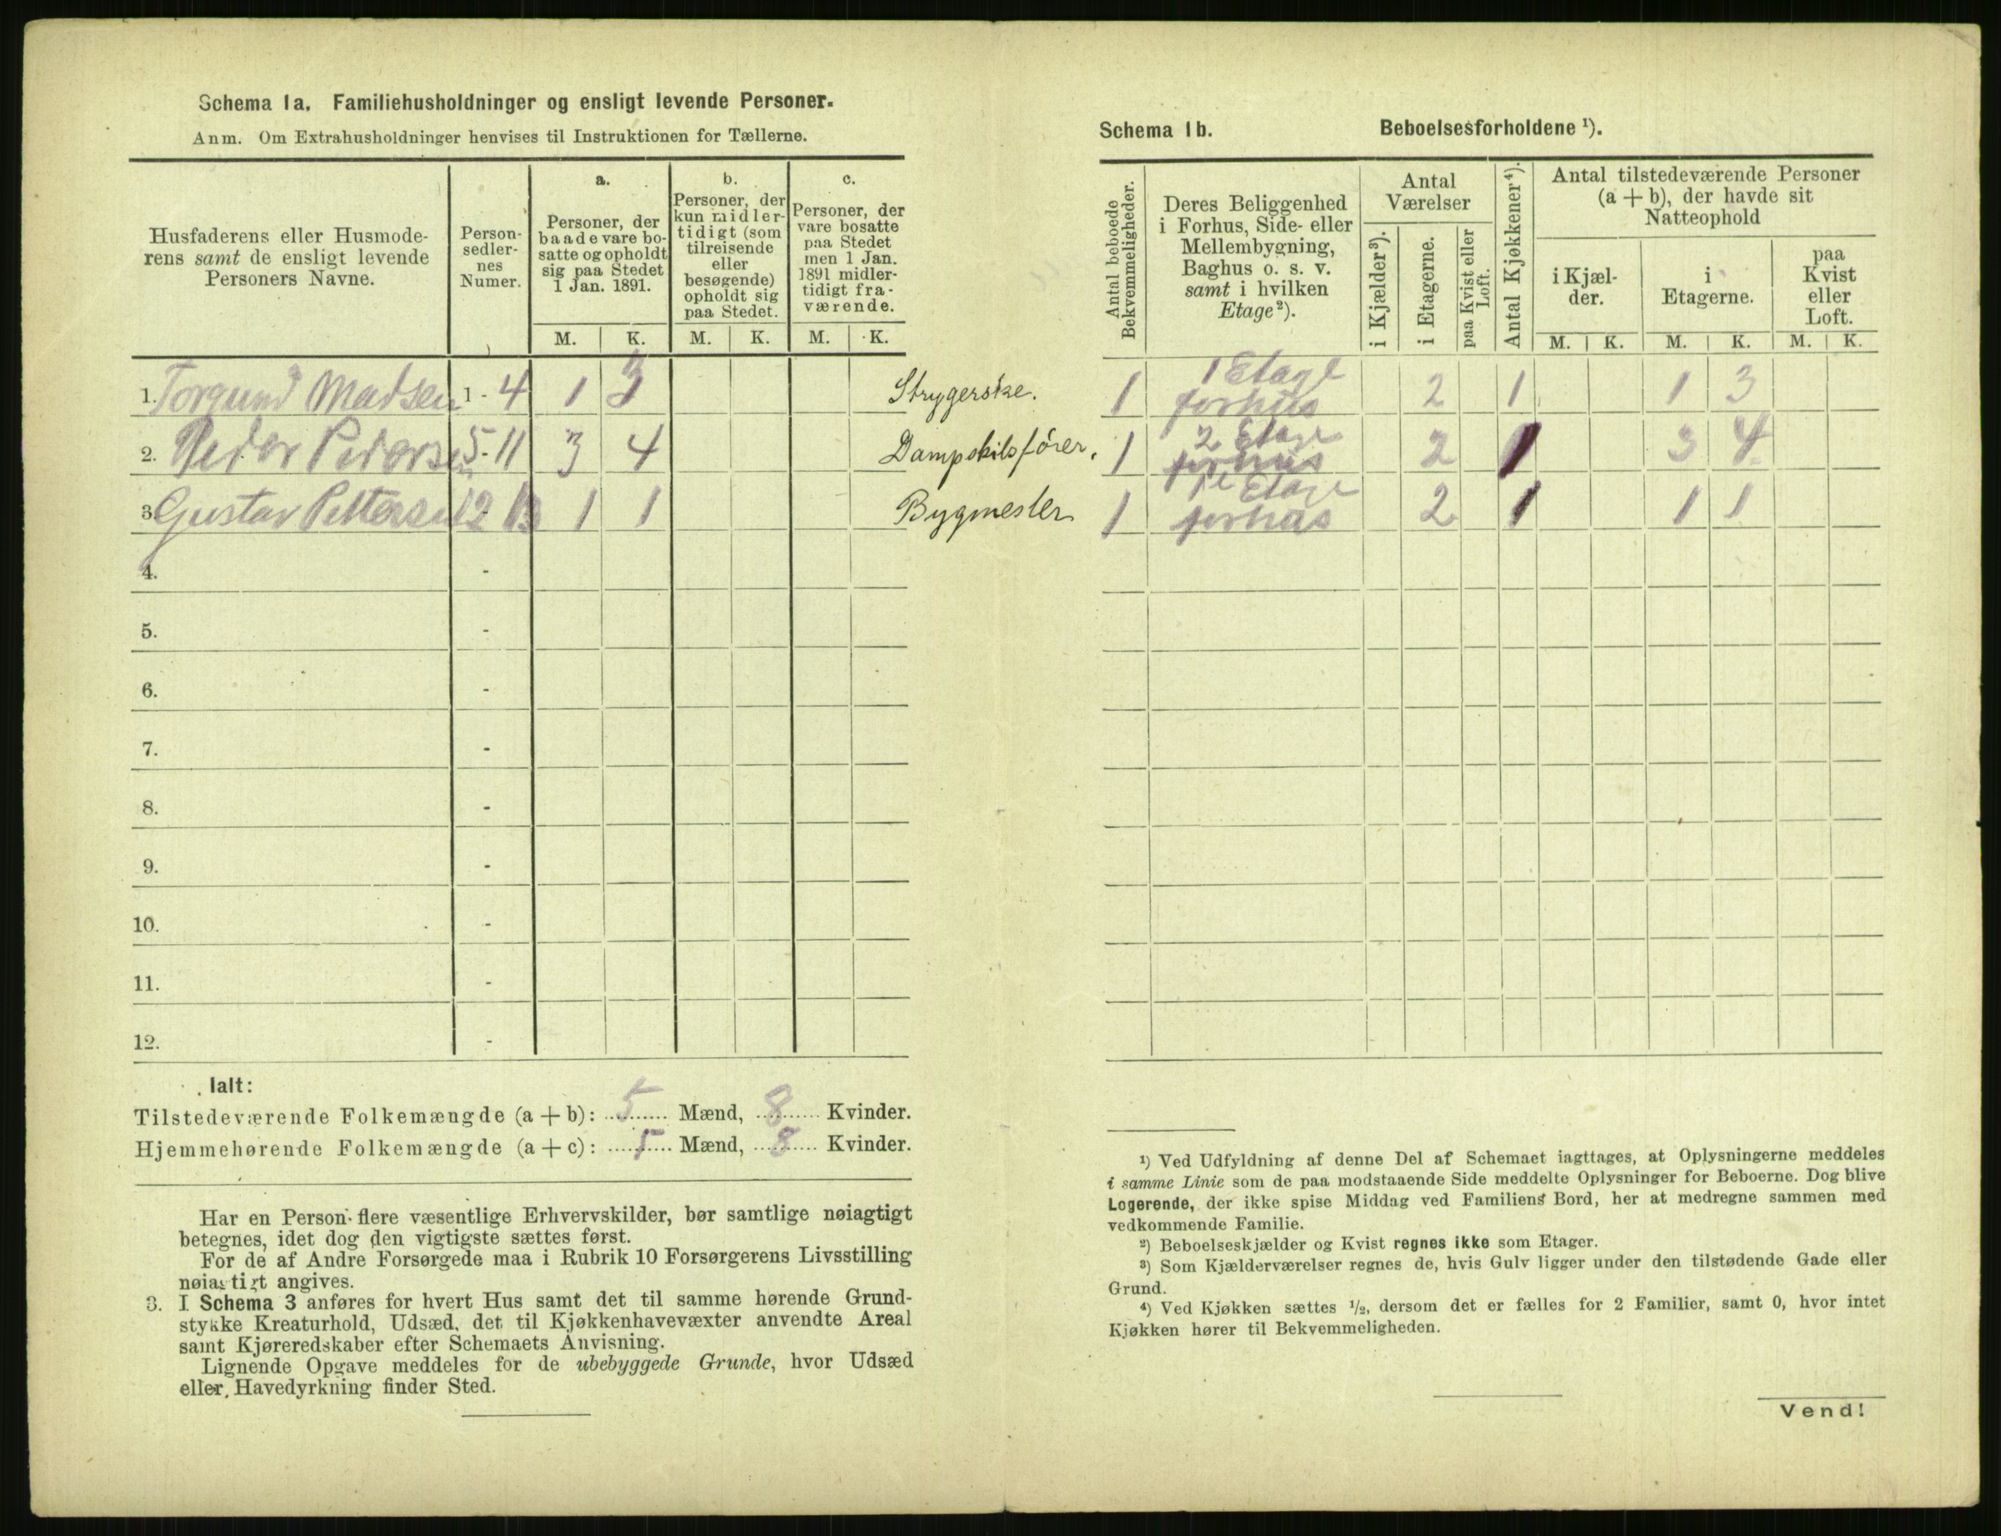 Schema 1a. Familiehusholdninger og ensligt levende Personer.
Anm. Om Extrahusholdninger henvises til Instruktionen for Tællerne.
Husfaderens eller Husmode-
rens samt de ensligt levende
Personers Navne.
Person-
sedler-
nes
Numer.
a.
Personer, der
baade vare bo-
satte og opholdt
sig paa Stedet
1 Jan. 1891.
b.
Personer, der
kun midler-
tidigt (som
tilreisende
eller
besøgende)
opholdt sig
paa Stedet.
c.
Personer, der
vare bosatte
paa Stedet
men 1 Jan.
1891 midler-
tidigt fra-
værende.
M. K. M. K. M. K.
1. Torgund Madsen 1 - 4 1 3 Strygerske.
2. Peder Pedersen 5-11 3 4 Dampskibsfører.
3. Gustav Pettersen 12 13 1 1 Bygmester
4. -
5. -
6. -
7. -
8. -
9. -
10. -
11. -
12. -
Ialt:
Tilstedeværende Folkemængde (a + b): 5 Mænd, 8 Kvinder.
Hjemmehørende Folkemængde (a + c): 5 Mænd, 8 Kvinder.
Har en Person flere væsentlige Erhvervskilder, bør samtlige nøiagtigt
betegnes, idet dog den vigtigste sættes først.
For de af Andre Forsørgede maa i Rubrik 10 Forsørgerens Livsstilling
nøiagtigt angives.
3. I Schema 3 anføres for hvert Hus samt det til samme hørende Grund-
stykke Kreaturhold, Udsæd, det til Kjøkkenhavevæxter anvendte Areal
samt Kjøreredskaber efter Schemaets Anvisning.
Lignende Opgave meddeles for de ubebyggede Grunde, hvor Udsæd
eller Havedyrkning finder Sted.
Schema 1b. Beboelsesforholdene ¹).
Antal beboede
Bekvemmeligheder.
Deres Beliggenhed
i Forhus, Side- eller
Mellembygning,
Baghus o. s. v.
samt i hvilken
Etage²).
Antal
Værelser
i Kjælder³).
i Etagerne.
paa Kvist eller
Loft.
Antal Kjøkkener⁴).
Antal tilstedeværende Personer
(a + b), der havde sit
Natteophold
i Kjæl-
der.
i
Etagerne.
paa
Kvist
eller
Loft.
M. K. M. K. M. K.
1 1 Etage forhus 2 1 1 3
1 2 Etage forhus 2 1 3 4
1 1 Etage forhus 2 1 1 1
¹) Ved Udfyldning af denne Del af Schemaet iagttages, at Oplysningerne meddeles
i samme Linie som de paa modstaaende Side meddelte Oplysninger for Beboerne. Dog blive
Logerende, der ikke spise Middag ved Familiens Bord, her at medregne sammen med
vedkommende Familie.
²) Beboelseskjælder og Kvist regnes ikke som Etager.
³) Som Kjælderværelser regnes de, hvis Gulv ligger under den tilstødende Gade eller
Grund.
⁴) Ved Kjøkken sættes ½, dersom det er fælles for 2 Familier, samt 0, hvor intet
Kjøkken hører til Bekvemmeligheden.
Vend!